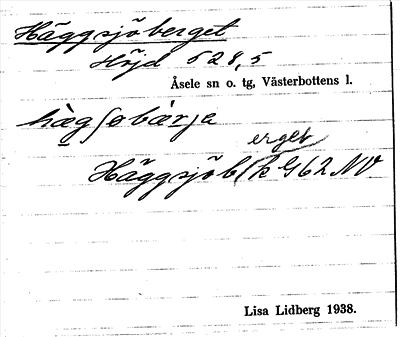 Häggsjöberget
Höjd 528,5
Åsele sn o. tg, Västerbottens l.
hægʃobærja
erget
Häggsjöb (k G62 NV
Lisa Lidberg 1938.